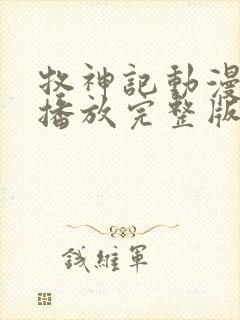 牧神記動漫
播放完整版
錢維軍